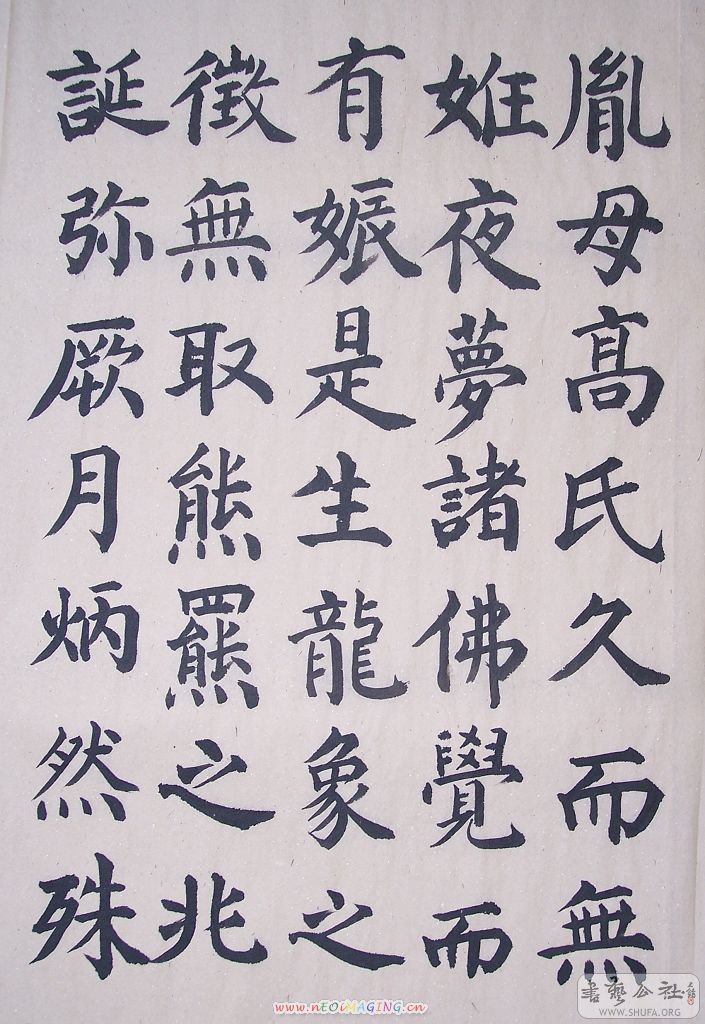 胤母髙氏久而無
姙夜夢諸佛覺而
有娠是生龍象之
徵無取熊羆之兆
誕弥厥月炳然殊
www.nEOiMAGING.cn
書藝公社
WWW.SHUFA.ORG